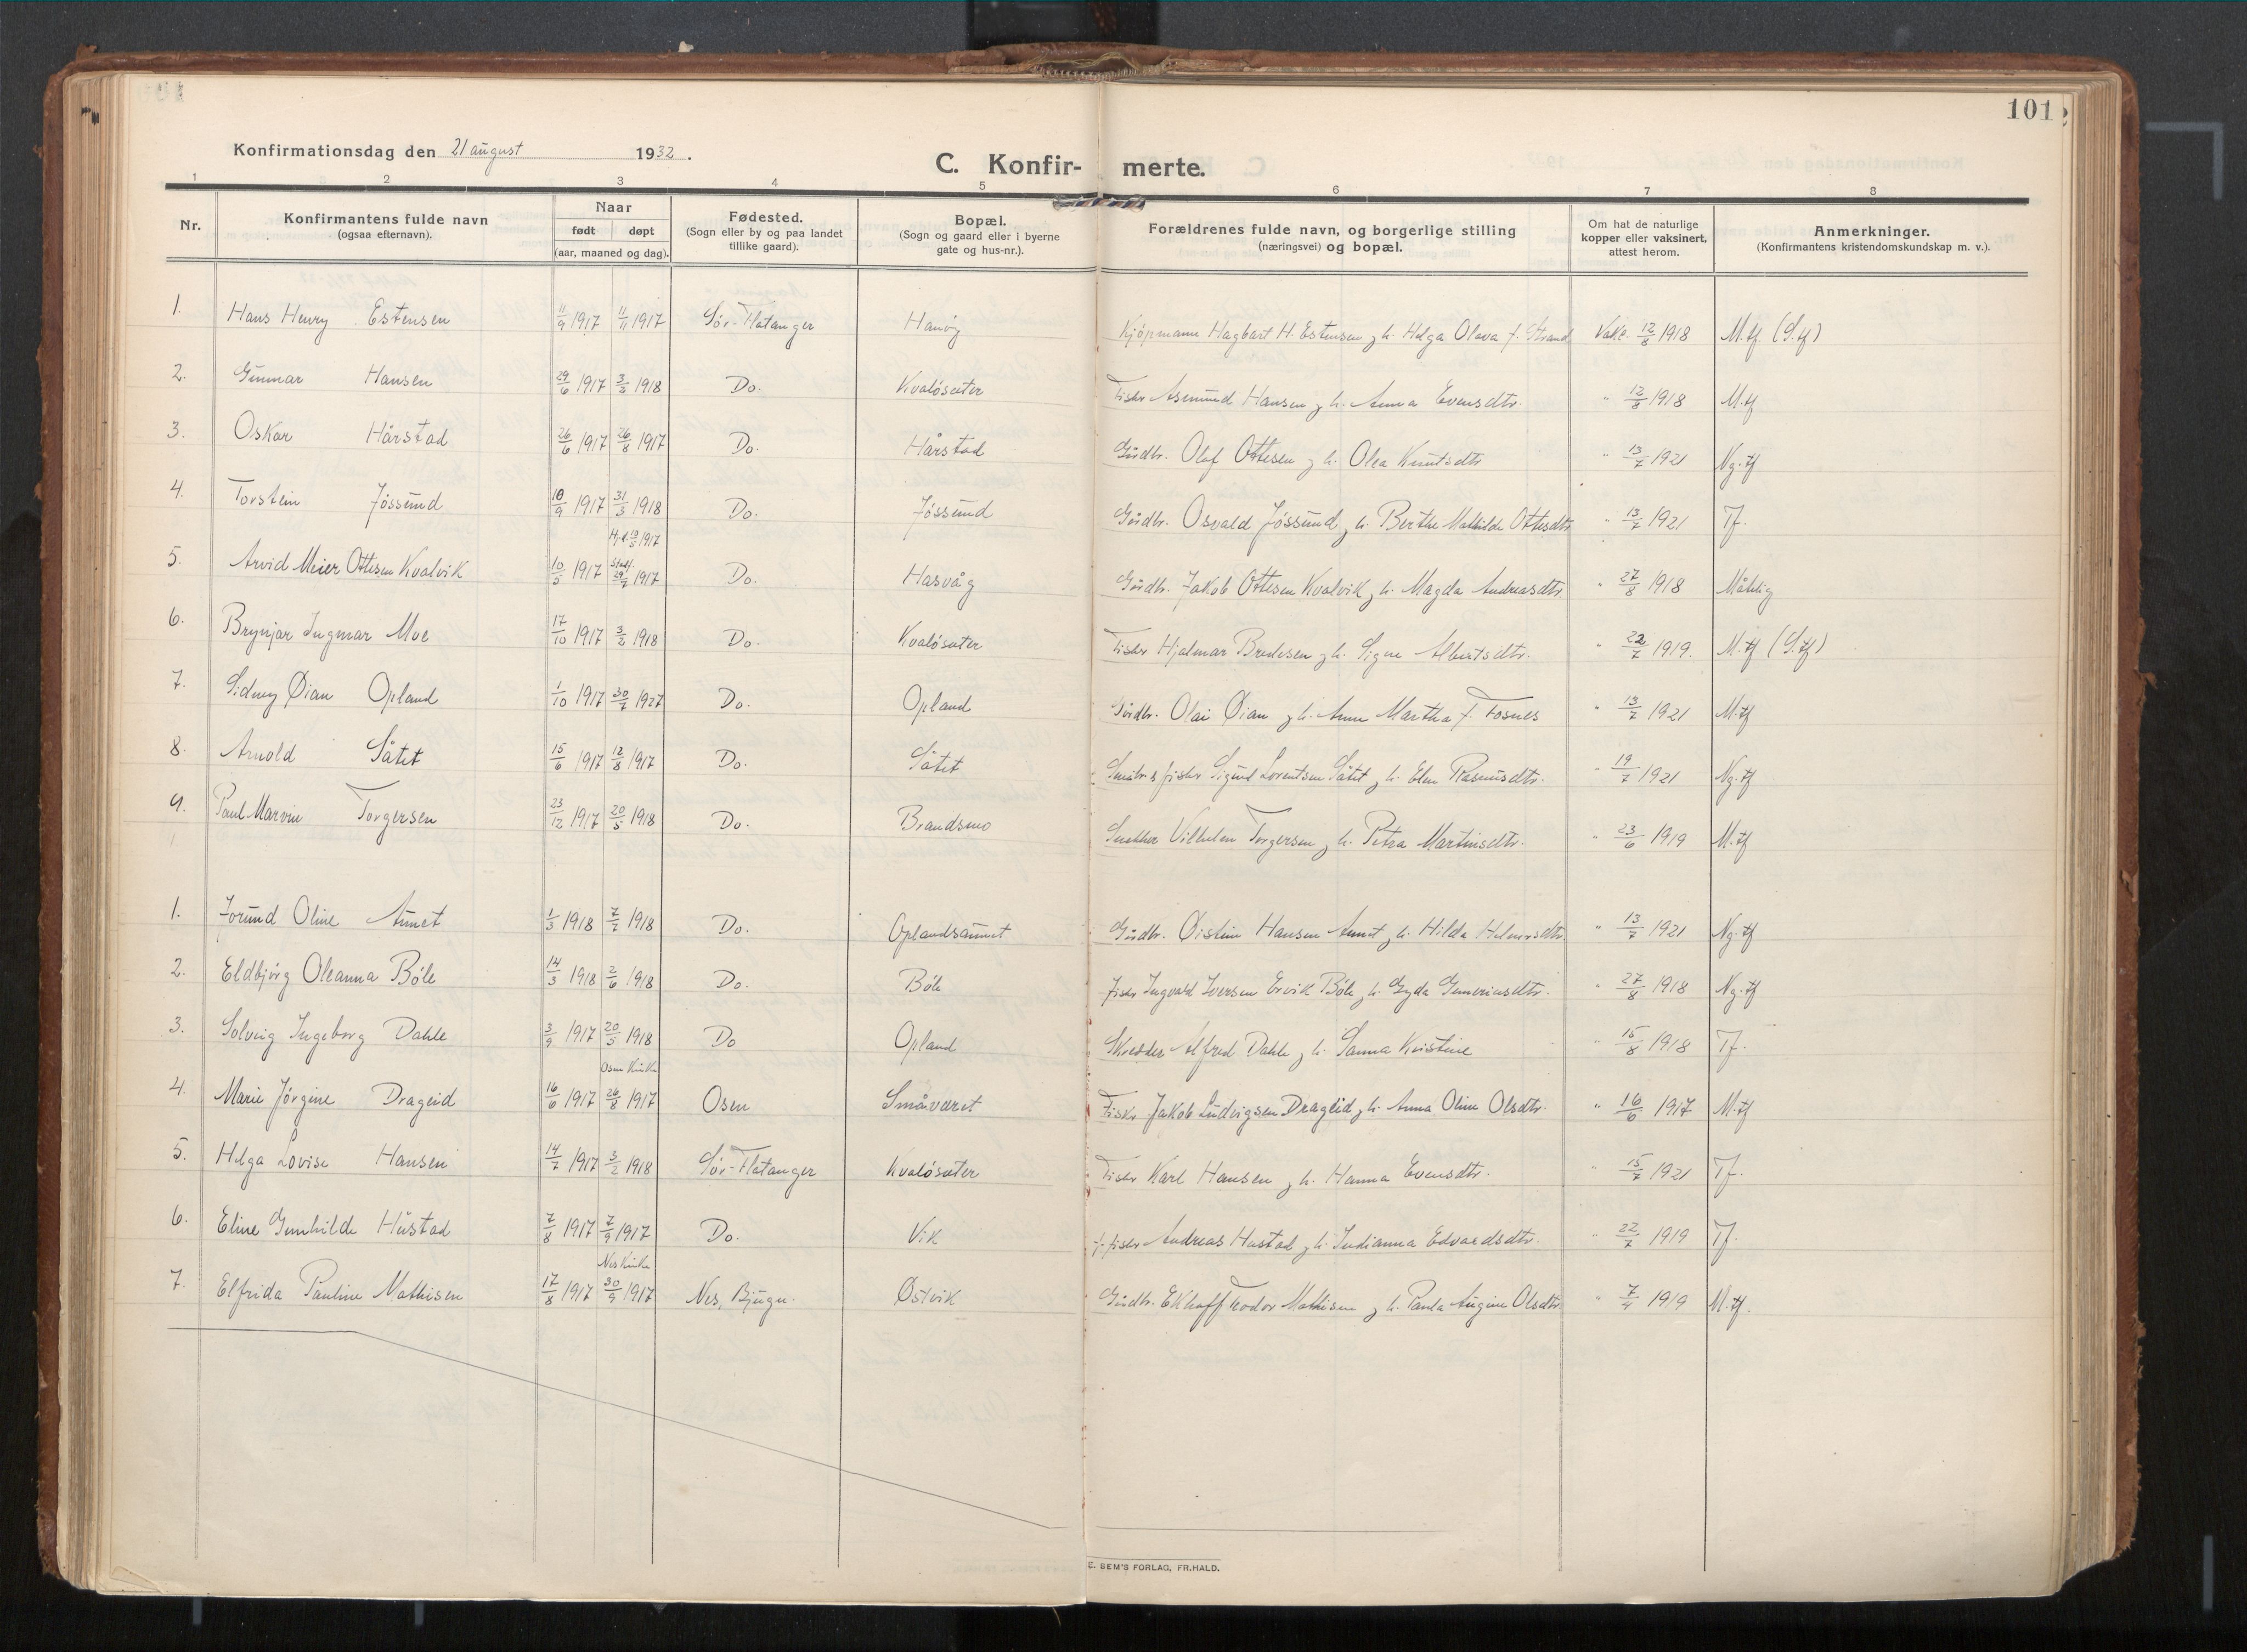 101
Konfirmationsdag den 21 august 1932.
C. Konfir- merte.
1 2 3 4 5 6 7 8
Nr. Konfirmantens fulde navn (ogsaa efternavn). Naar født døpt (aar, maaned og dag). Fødested. (Sogn eller by og paa landet tillike gaard). Bopæl. (Sogn og gaard eller i byerne gate og hus-nr.). Forældrenes fulde navn, og borgerlige stilling (næringsvei) og bopæl. Om hat de naturlige kopper eller vaksinert, attest herom. Anmerkninger. (Konfirmantens kristendomskundskap m. v.).
1. Hans Henry Estensen 11/9 1917 11/11 1917 Sør-Flatanger Hanøy Kjøpmann Hagbart H. Estensen g. h. Helga Olava f. Strand Vakc. 12/8 1918 M.tf. (S.tf)
2. Gunnar Hansen 29/6 1917 3/2 1918 Do. Kvaløsæter Fisker Asmund Hansen g. h. Anna Evensdtr. " 12/8 1918 M.tf
3. Oskar Hårstad 26/6 1917 26/8 1917 Do. Hårstad Gårdbr. Olaf Ottesen g. h. Olea Knutsdtr " 13/7 1921 Ng.tf
4. Torstein Jøssund 10/9 1917 31/3 1918 Do. Jøssund Gårdbr. Osvald Jøssund g. h. Berthe Mathilde Ottesdtr " 13/7 1921 Tf.
Hj.d. 10/5 1917
5. Arvid Meier Ottesen Kvalvik 10/5 1917 Stadf. 29/7 1917 Do. Hasvåg Gårdbr. Jakob Ottesen Kvalvik g. h. Magda Andreasdtr. " 27/8 1918 Måtelig
6. Brynjar Ingmar Moe 17/10 1917 3/2 1918 Do. Kvaløsæter Fisker Hjalmar Bredesen g. h. Signe Albertsdtr. " 22/7 1919. M.tf (S.tf)
7. Sidney Øian Opland 1/10 1917 30/7 1927 Do. Opland Gårdbr. Olai Øian g. h. Anne Martha f. Fosnes " 13/7 1921 M.tf
8. Arnold Såtet 15/6 1917 12/8 1917 Do. Såtet Småbr. & fisker Sigurd Lorentsen Såtet g. h. Elen Rasmusdtr. " 19/7 1921 Ng.tf
9. Paul Marvin Torgersen 23/12 1917 20/5 1918 Do. Brandsmo Snekker Vilhelm Torgersen g. h. Petra Martinsdtr. " 23/6 1919 M.tf
1. Jorund Oline Aunet 1/3 1918 7/7 1918 Do. Oplandsaunet Gårdbr. Øistein Hansen Aunet g. h. Hilda Helmersdtr " 13/7 1921 Ng.tf
2. Eldbjørg Oleanna Bøle 14/3 1918 2/6 1918 Do. Bøle fisker Ingvald Iversen Ervik Bøle g. h. Gyda Guneriusdtr. " 27/8 1918 Ng.tf
3. Solveig Ingeborg Dahle 3/9 1917 20/5 1918 Do Opland Skredder Alfred Dahle g. h. Sanna Kristine " 15/8 1918 Tf.
Osen Kirke
4. Marie Jørgine Drageid 16/6 1917 26/8 1917 Osen Småværet Fisker Jakob Ludvigsen Drageid g. h. Anna Oline Olsdtr. " 16/6 1917 M.tf
5. Helga Lovise Hansen 14/7 1917 3/2 1918 Sør-Flatanger Kvaløsæter Fisker Karl Hansen g. h. Hanna Evensdtr. " 15/7 1921 Tf.
6. Eline Gunhilde Hustad 7/8 1917 7/9 1917 Do. Vik fisker Andreas Hustad g. h. Indianna Edvardsdtr. " 22/7 1919 Tf.
Nes Kirke
7. Elfrida Pauline Mathisen 17/8 1917 30/9 1917 Nes, Bjugn. Østvik Gårdbr. Ekhoff Teodor Mathisen g. h. Paula Augine Olsdtr " 7/4 1919 M.tf.
E. SEM'S FORLAG, FR.HALD.